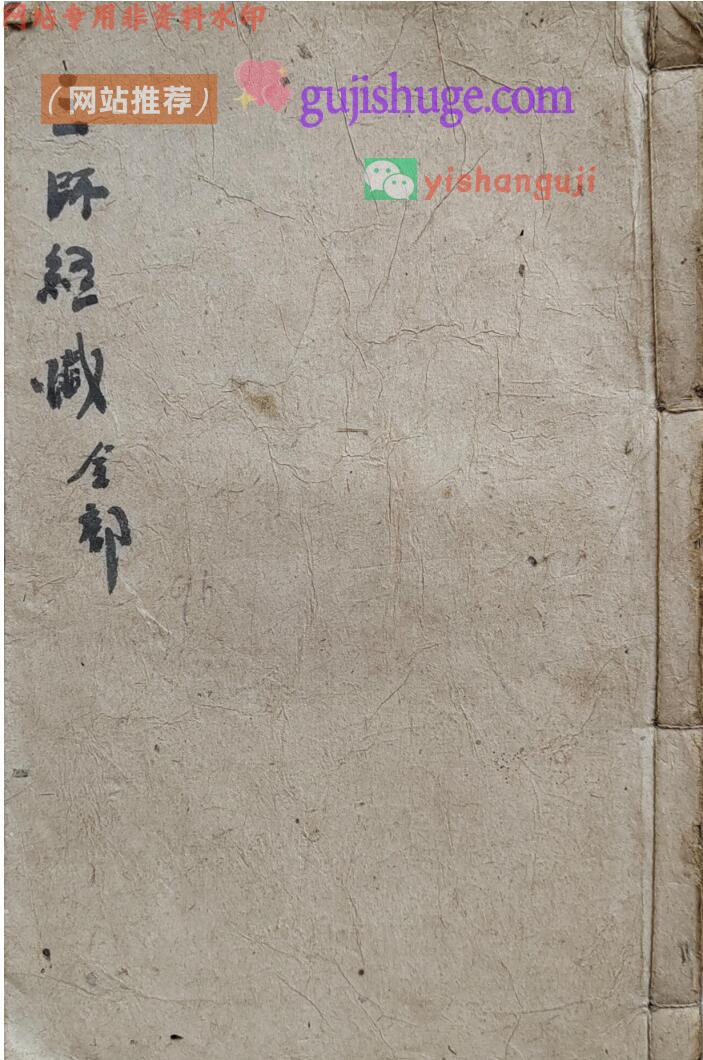 网站专用非资料水印
（网站推荐）
gujishuge.com
yishanguji
師經懺全部